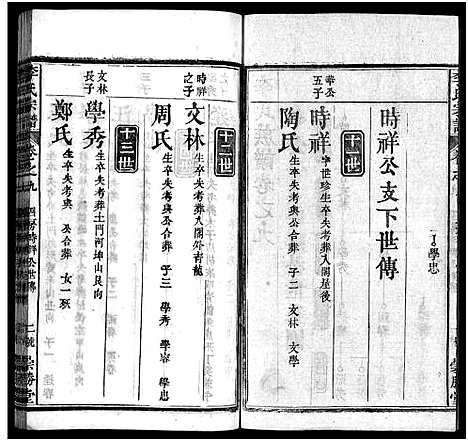 學忠
時祥公支下世傳
十一世
華公五子
時祥 字世珍生卒失考葬入閣屋後
陶氏 生卒失考與公合葬 子二 文林 文學
十二世
時祥之子
文林 生卒失考葬入閣外青龍
周氏 生卒失考與公合葬 子三 學秀 學容 學忠
十三世
文林長子
學秀 生卒失考葬土門河埠山艮向
鄭氏 生卒失考與公合葬 女一
李氏宗譜 卷之九 四房時祥公世傳 二號 崇勝堂